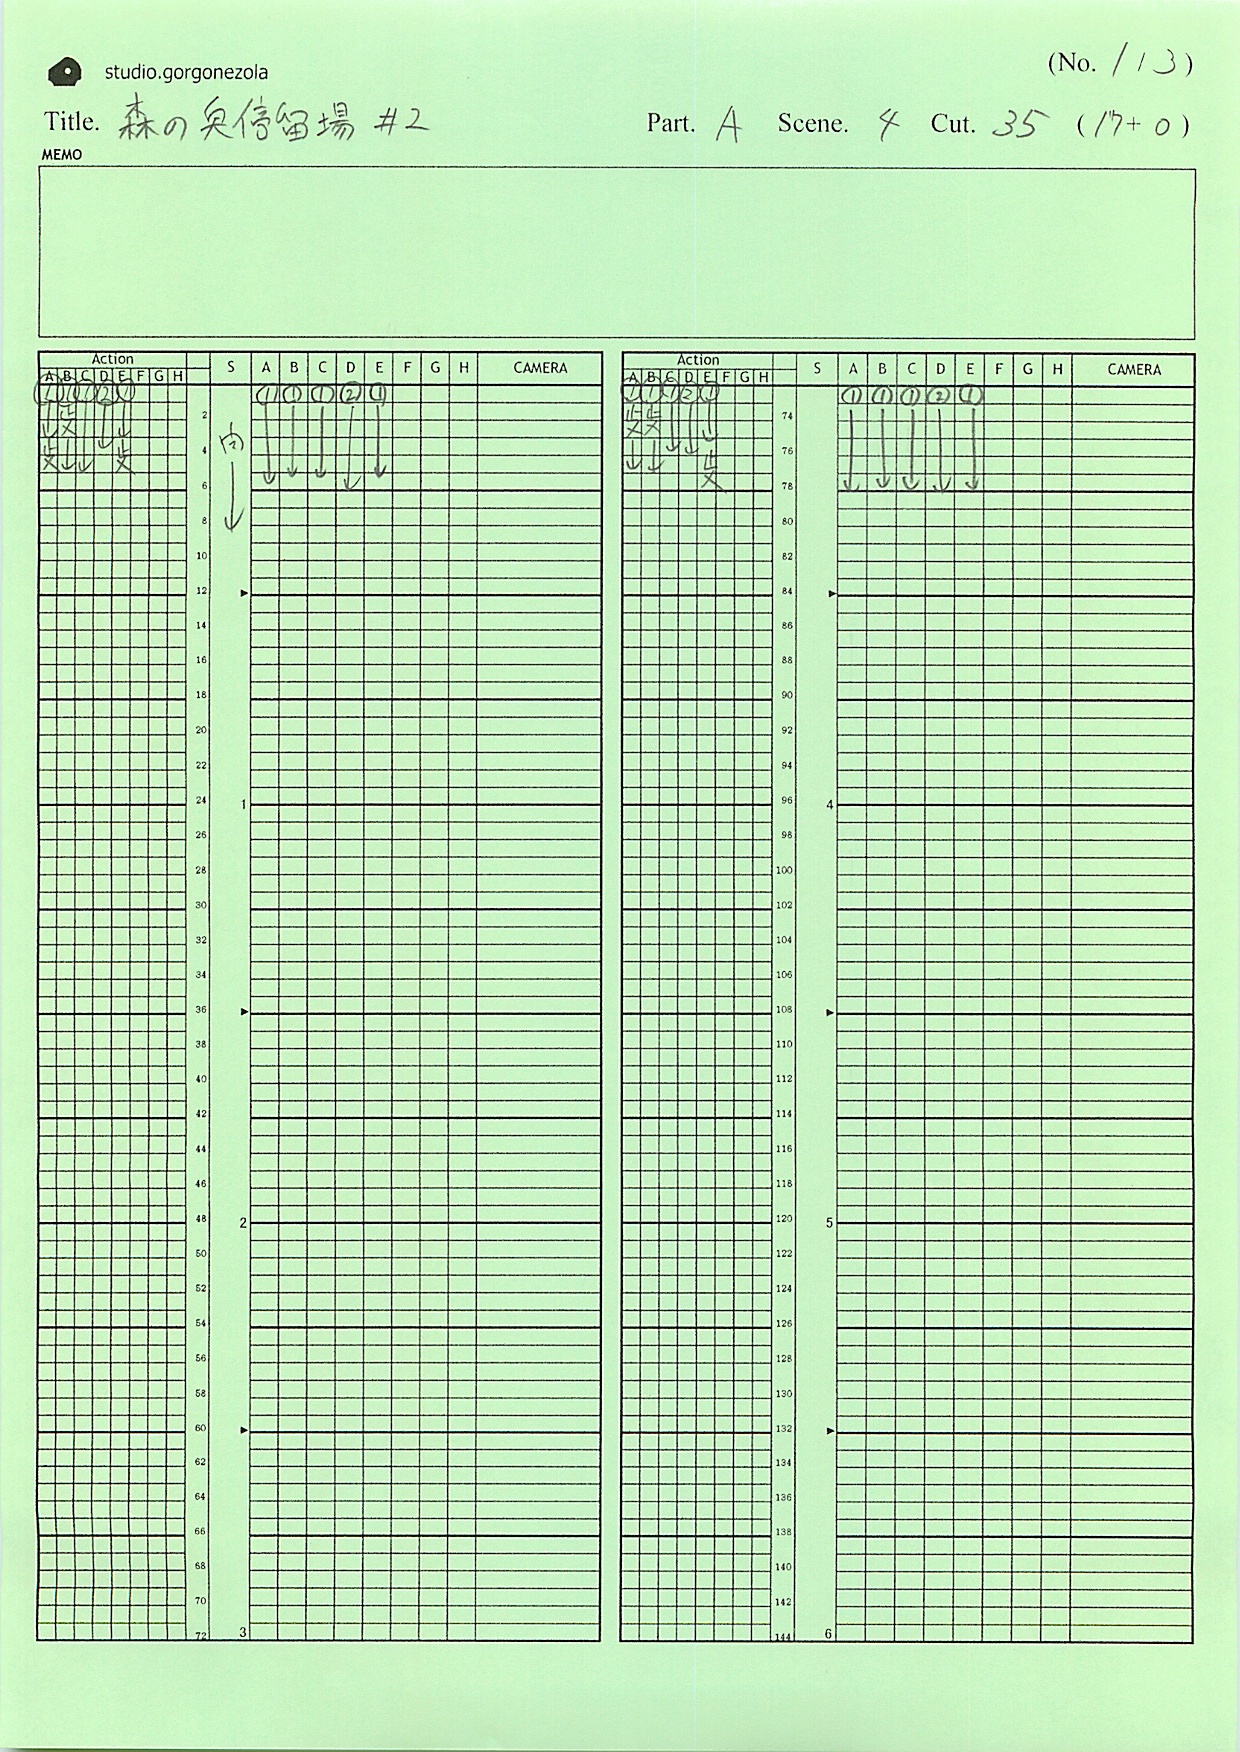 studio.gorgonezola
(No. 1/3)
Title. 森の奥停留場 #2
Part. A Scene. 4 Cut. 35 (17+0)
MEMO
Action S A B C D E F G H CAMERA
A B C D E F G H
① ① ① ② ①
止メ
止メ 止メ
2
4
6
8
10
12
14
16
18
20
22
24 1
26
28
30
32
34
36
38
40
42
44
46
48 2
50
52
54
56
58
60
62
64
66
68
70
72 3
Action S A B C D E F G H CAMERA
A B C D E F G H
① ① ① ② ①
止メ 止メ
止メ
74
76
78
80
82
84
86
88
90
92
94
96 4
98
100
102
104
106
108
110
112
114
116
118
120 5
122
124
126
128
130
132
134
136
138
140
142
144 6